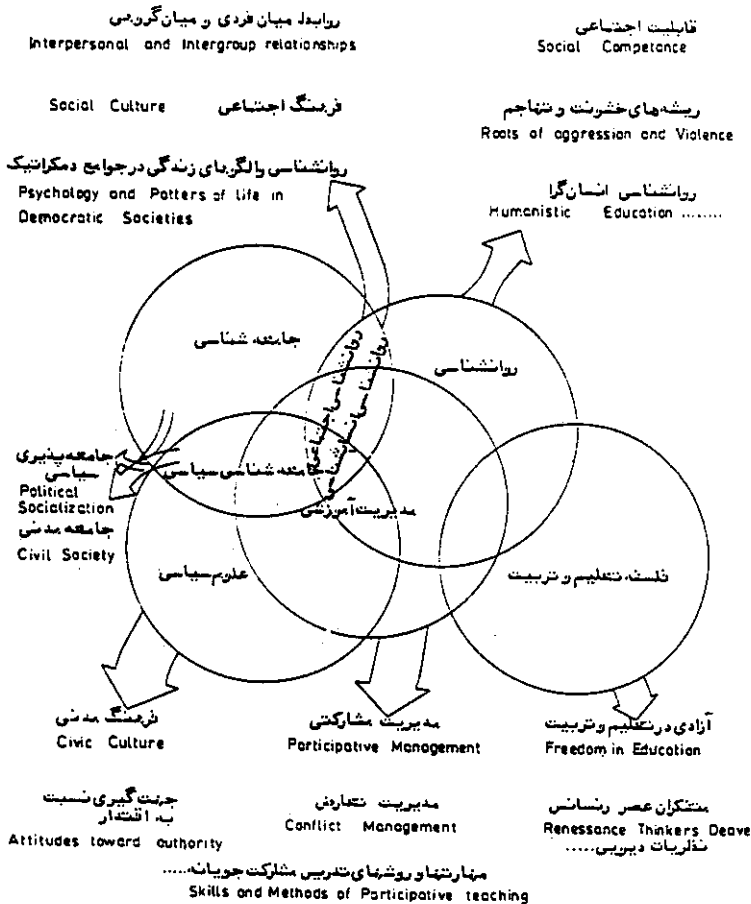 روابط میان فردی و میان‌گروهی
Interpersonal and Intergroup relationships
قابلیت اجتماعی
Social Competance
Social Culture فرهنگ اجتماعی
ریشه‌های خشونت و تهاجم
Roots of aggression and Violence
روانشناسی و الگوهای زندگی در جوامع دمکراتیک
Psychology and Patters of life in
Democratic Societies
روانشناسی انسان‌گرا
Humanistic Education ........
جامعه شناسی
روانشناسی
روانشناسی اجتماعی
روانشناسی
جامعه‌پذیری
سیاسی
Political
Socialization
جامعه شناسی سیاسی
جامعه مدنی
Civil Society
مدیریت آموزشی
علوم سیاسی
فلسفه تعلیم و تربیت
فرهنگ مدنی
Civic Culture
مدیریت مشارکتی
Participative Management
آزادی در تعلیم و تربیت
Freedom in Education
جهت گیری نسبت
به اقتدار
Attitudes toward authority
مدیریت تعارض
Conflict Management
متفکران عصر رنسانس
Renessance Thinkers Deave
نظریات دیویی.....
مهارتها و روشهای تدریس مشارکت جویانه.....
Skills and Methods of Participative teaching